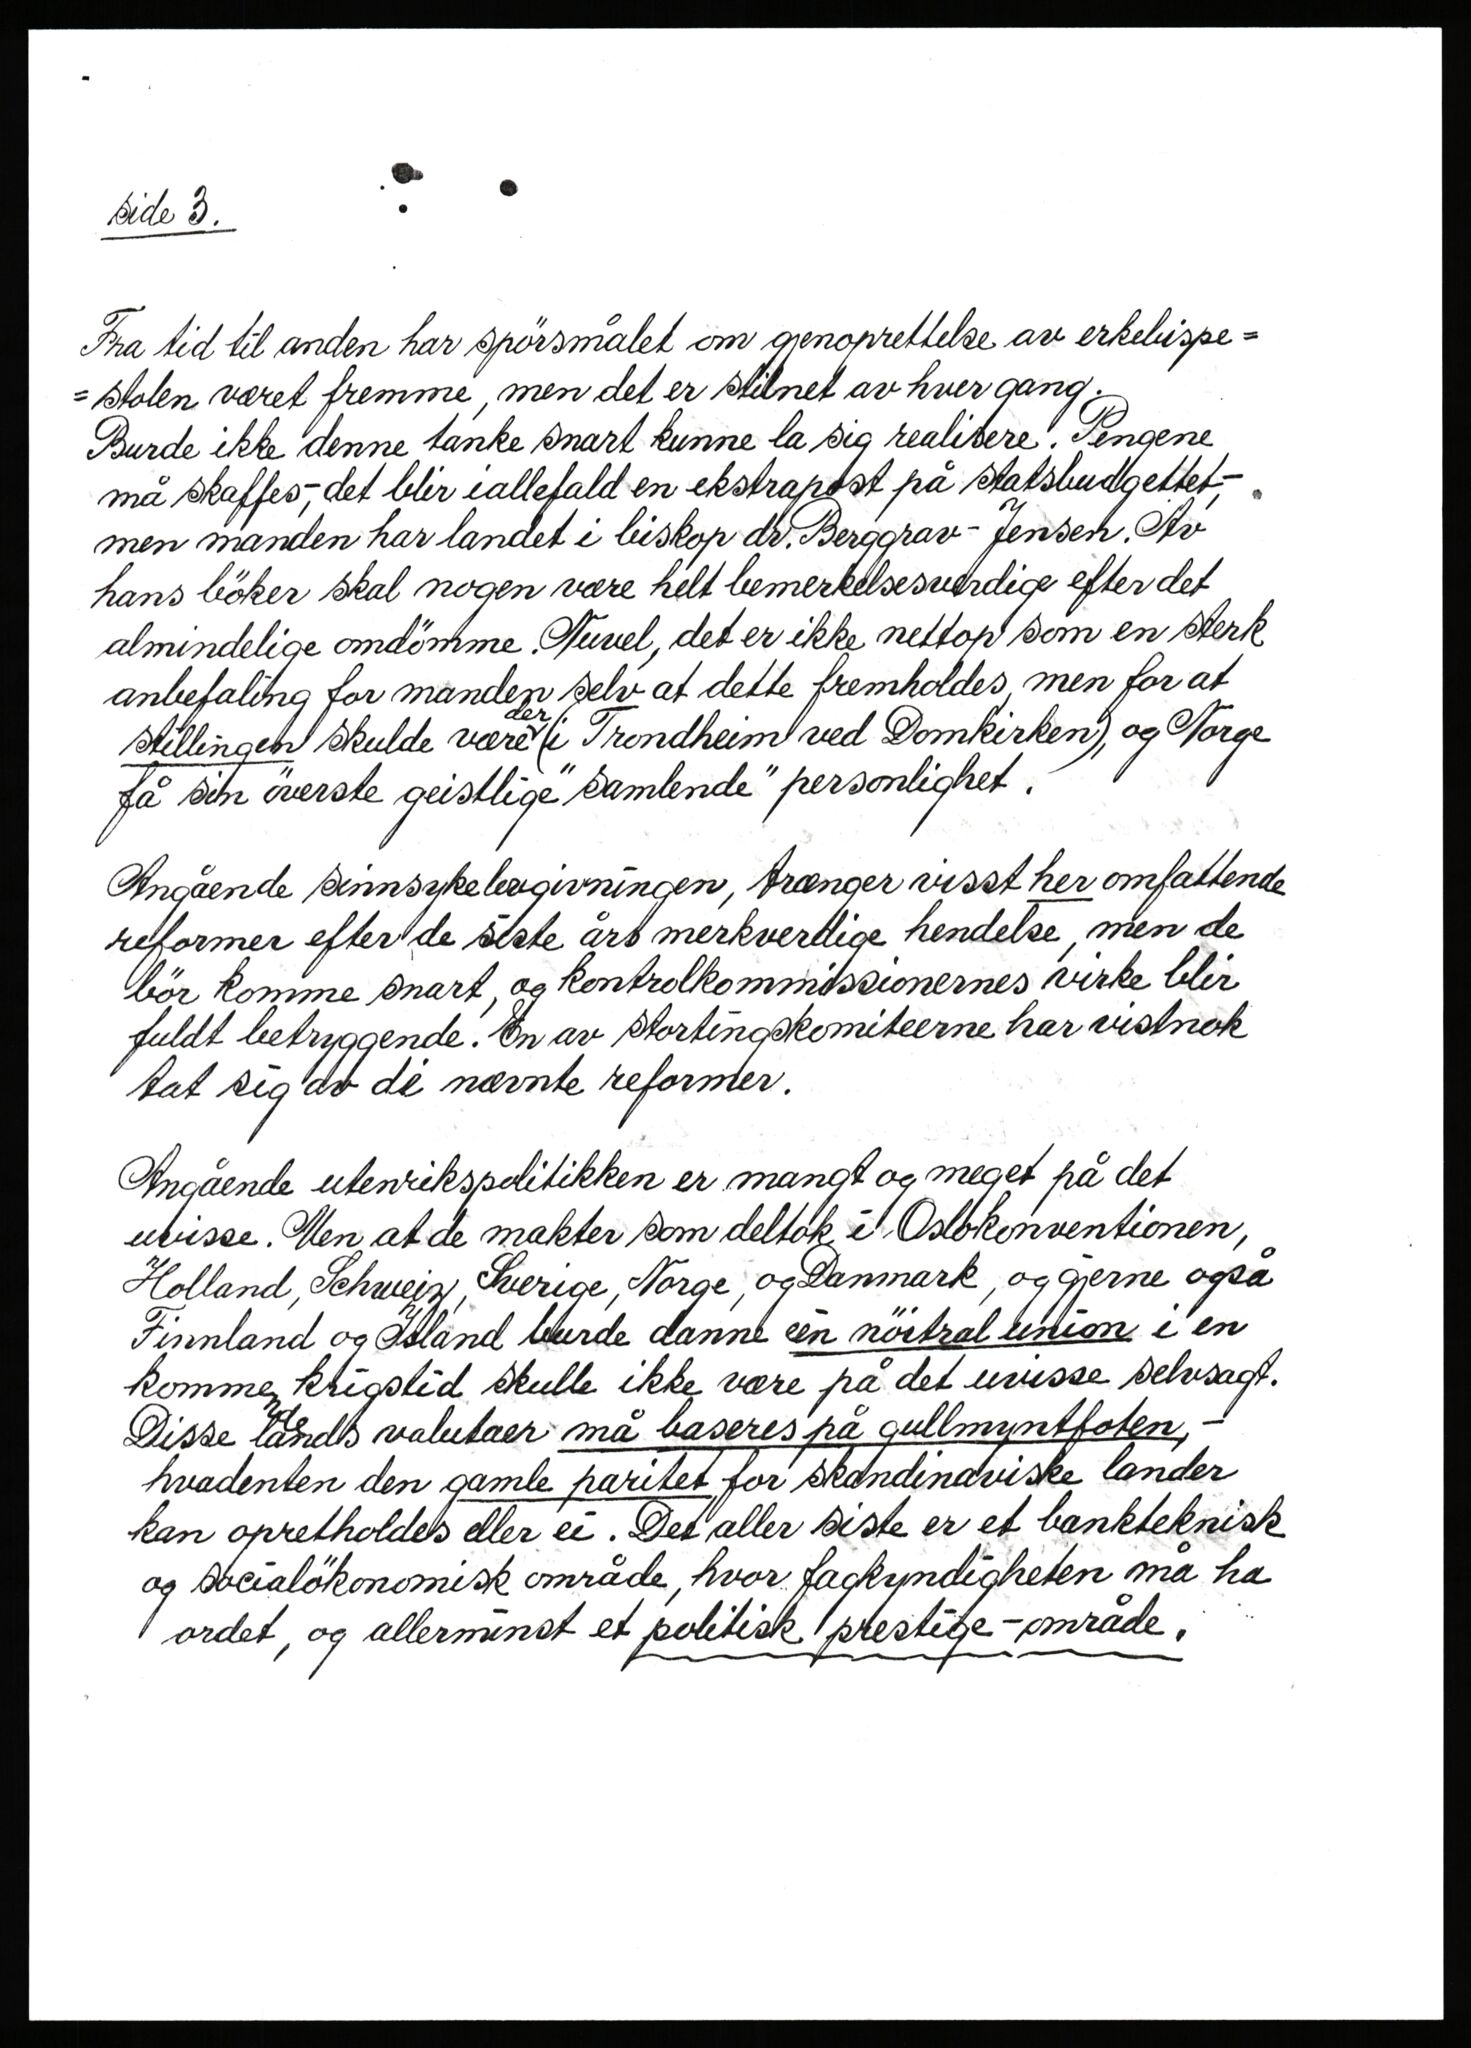 side 3.
Fra tid til anden har spörsmålet om gjenoprettelse av erkebispe=
=stolen været fremme, men det er stilnet av hver gang.
Burde ikke denne tanke snart kunne la sig realisere. Pengene
må skaffes,- det blir iallefald en ekstrapost på statsbudgettet,-
men manden har landet i biskop dr. Berggrav-Jensen. Av
hans böker skal nogen være helt bemerkelsesverdige efter det
almindelige omdömme. Nuvel, det er ikke nettop som en sterk
anbefaling for manden selv at dette fremholdes, men for at
stillingen skulde være der (i Trondheim ved Domkirken), og Norge
få sin överste geistlige "samlende" personlighet.
Angående sinnsykelovgivningen, trænger visst her omfattende
reformer efter de siste års merkverdige hendelse, men de
bör komme snart, og kontrolkommissionernes virke blir
fuldt betryggende. En av stortingskomiteerne har vistnok
tat sig av di nævnte reformer.
Angående utenrikspolitikken er mangt og meget på det
uvisse. Men at de makter som deltok i Oslokonventionen,
Holland, Schweiz, Sverige, Norge, og Danmark, og gjerne også
Finnland og Island burde danne én nöitral union i en
komme krigstid skulle ikke være på det uvisse selvsagt.
Disse lands valutaer må baseres på gullmyntfoten,-
hvadenten den gamle paritet for skandinaviske lander
kan opretholdes eller ei. Det aller siste er et bankteknisk
og socialökonomisk område, hvor fagkyndigheten må ha
ordet, og allerminst et politisk prestige-område.